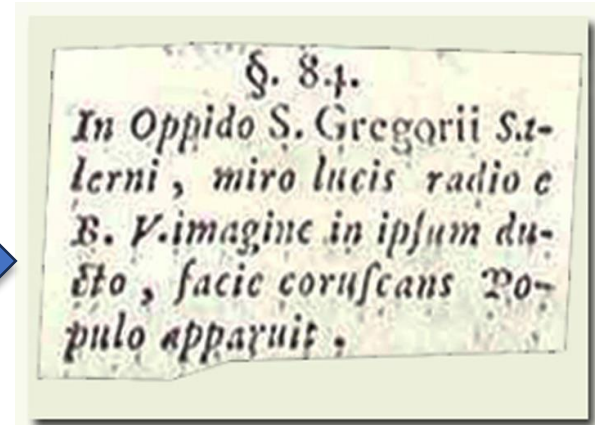 §. 84.
In Oppido S. Gregorii Sa-
lerni, miro lucis radio e
B. V. imagine in ipſum du-
cto, facie coruſcans Po-
pulo apparuit.